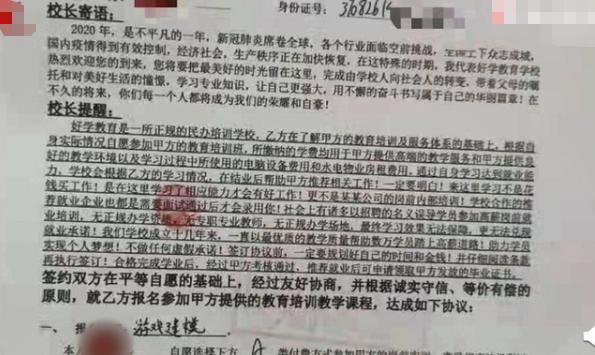 身份证号:
校长寄语:
2020年,是不平凡的一年,新冠肺炎席卷全球,各个行业面临空前挑战,全国上下众志成城,
国内疫情得到有效控制,经济社会,生产秩序正在加快恢复,在这特殊的时期,我代表好学教育学校
热烈欢迎您的到来,您将要把最美好的时光留在这里,完成由学校人向社会人的转变,带着父母的嘱
托和对美好生活的憧憬,学习专业知识,让自己更强大,用不懈的奋斗书写属于自己的华丽篇章!在不
久的将来,你们每一个人都将成为我们的荣耀和自豪!
校长提醒:
好学教育是一所正规的民办培训学校,乙方在了解甲方的教育培训及服务体系的基础上,根据自
身实际情况自愿参加甲方的教育培训班,所缴纳的学费均用于甲方提供高端的教学服务和甲方提供良
好的教学环境以及学习过程中所使用的电脑设备费用和水电物业房租费用,通过自身学习达到就业能
力,学校会根据乙方的学习情况,在结业后帮助甲方推荐相关工作!一定要明白!来这里学习不是花
钱买工作!是在这里学习了相应能力才会有好工作!更不是某某公司的岗前内部培训!学校合作的推
荐就业企业也都是需要面试通过后才会录用你!社会上有诸多以招聘的名义误导学员参加高薪岗前就
业培训,无正规办学资质,无专职专业教师,无正规办学场地,最终学习效果无法保障,更无法兑现
就业承诺!我们学校成立十几年来,一直以最优质的教学质量帮助数万学员踏上高薪道路!助力学员
实现个人梦想!不做任何虚假承诺!签订协议前,一定要规划好自己的时间和金钱!并仔细阅读条款
再执行签订!合格完成学业后,经过甲方考核通过,推荐就业后可申请领取甲方发放的毕业证书。
签约双方在平等自愿的基础上,经过友好协商,并根据诚实守信、等价有偿的
原则,就乙方报名参加甲方提供的教育培训教学课程,达成如下协议:
一、报 游戏建模
本人 自愿选择下方 A 类付费方式参加甲方的